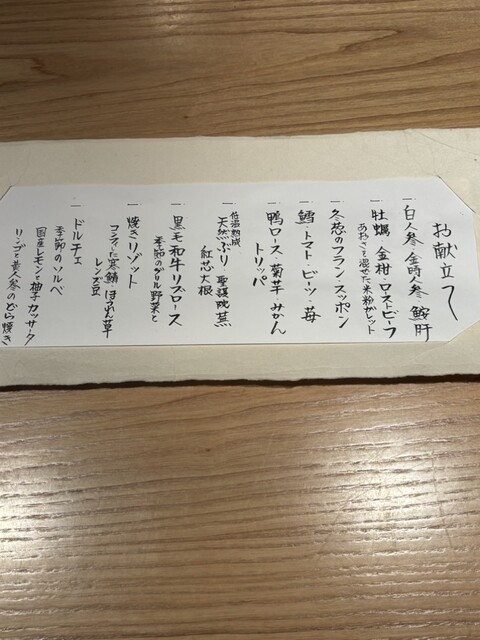 お献立
一 白人参・金時人参 鮟肝
一 牡蠣・金柑・ローストビーフ
あおさを混ぜた米粉ガレット
一 冬葱のフラン・スッポン
一 鱈・トマト・ビーツ・苺
一 鴨ロース・菊芋・みかん
トリッパ
一 低温熟成
天然ぶり 聖護院蕪
紅芯大根
一 黒毛和牛リブロース
季節のグリル野菜と
一 焼きリゾット
コンフィした寒鯖 ほうれん草
レンズ豆
一 ドルチェ
季節のソルベ
国産レモンと柚子カッサータ
リンゴと黄人参のどら焼き